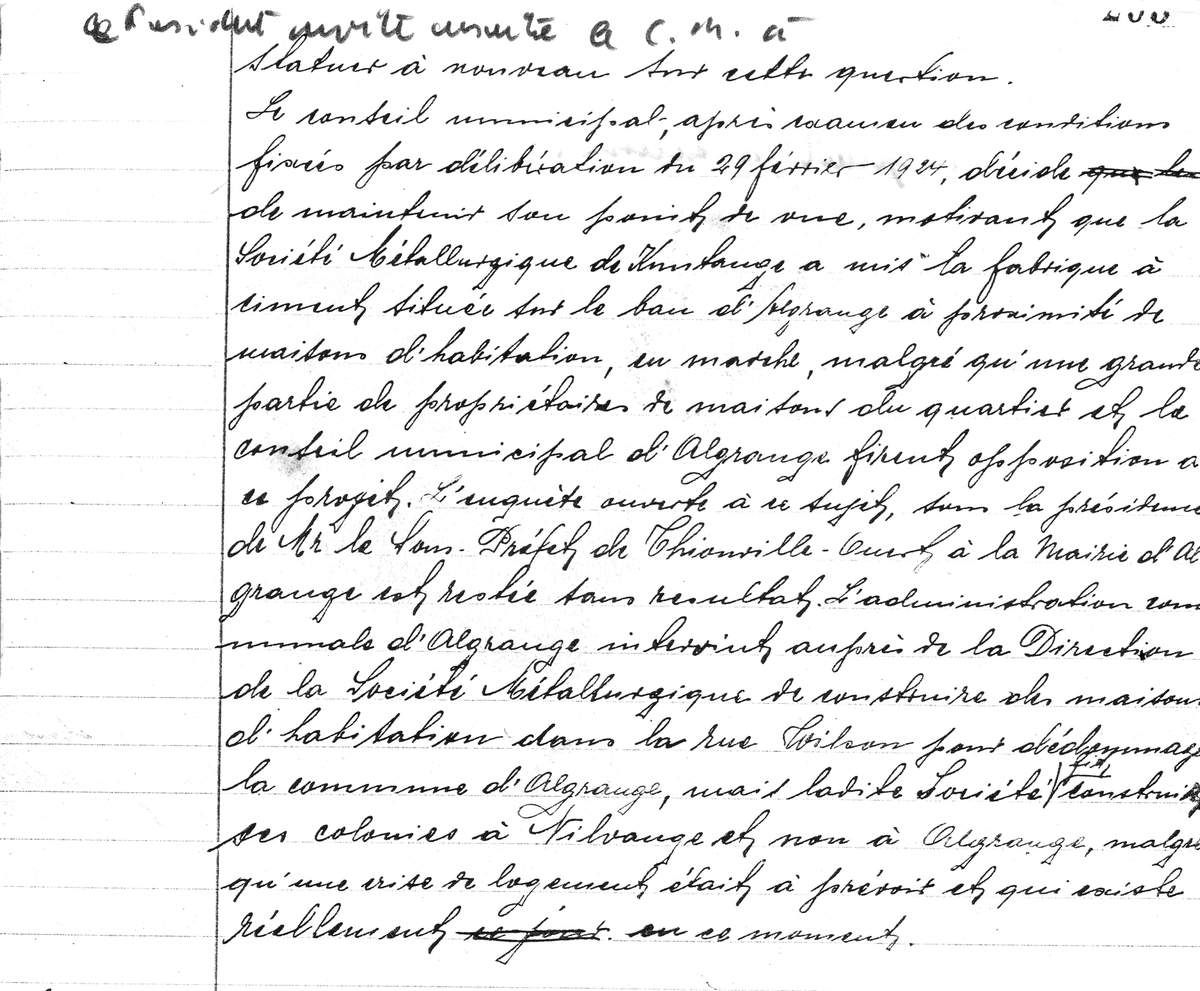 Le Président invite ensuite le C. M. à
statuer à nouveau sur cette question.
Le conseil municipal, après examen des conditions
fixées par délibération du 29 février 1924, décide que les
de maintenir son point de vue, motivant que la
Société Métallurgique de Knutange a mis la fabrique à
ciment située sur le ban d'Algrange à proximité de
maisons d'habitation, en marche, malgré qu'une grande
partie de propriétaires de maisons du quartier et le
conseil municipal d'Algrange firent opposition à
ce projet. L'enquête ouverte à ce sujet, sous la présidence
de Mr le Sous-Préfet de Thionville-Ouest à la Mairie d'Al
grange est restée sans resultat. L'administration com
munale d'Algrange intervint auprès de la Direction
de la Société Métallurgique de construire des maisons
d'habitation dans la rue Wilson pour dédommager
la commune d'Algrange, mais ladite Société fit construire
ses colonies à Nilvange et non à Algrange, malgré
qu'une crise de logement était à prévoir et qui existe
réellement ce jour. en ce moment.